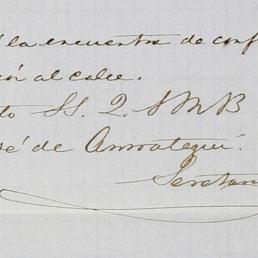 la encuentra de conf
al calce.
to SS. Q. S M B
sé de Amoategui.
Secretar